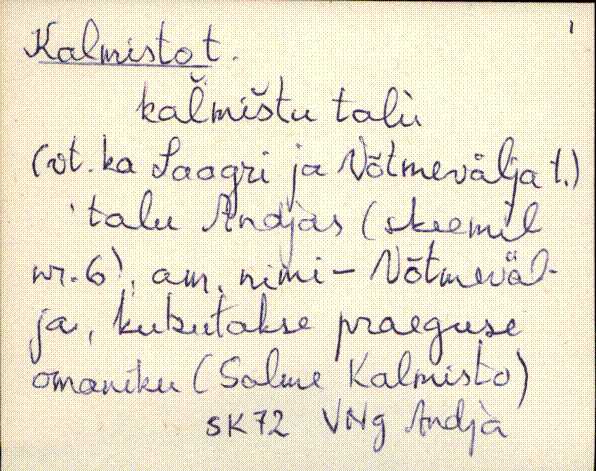 1
Kalmisto t.
kal̆mištu talù
(vt. ka Saagri ja Võtmevälja t.)
talu Andjas (skeemil
nr. 6), am. nimi – Võtmeväl-
ja, kutsutakse praeguse
omaniku (Salme Kalmisto)
SK72 VNg Andja